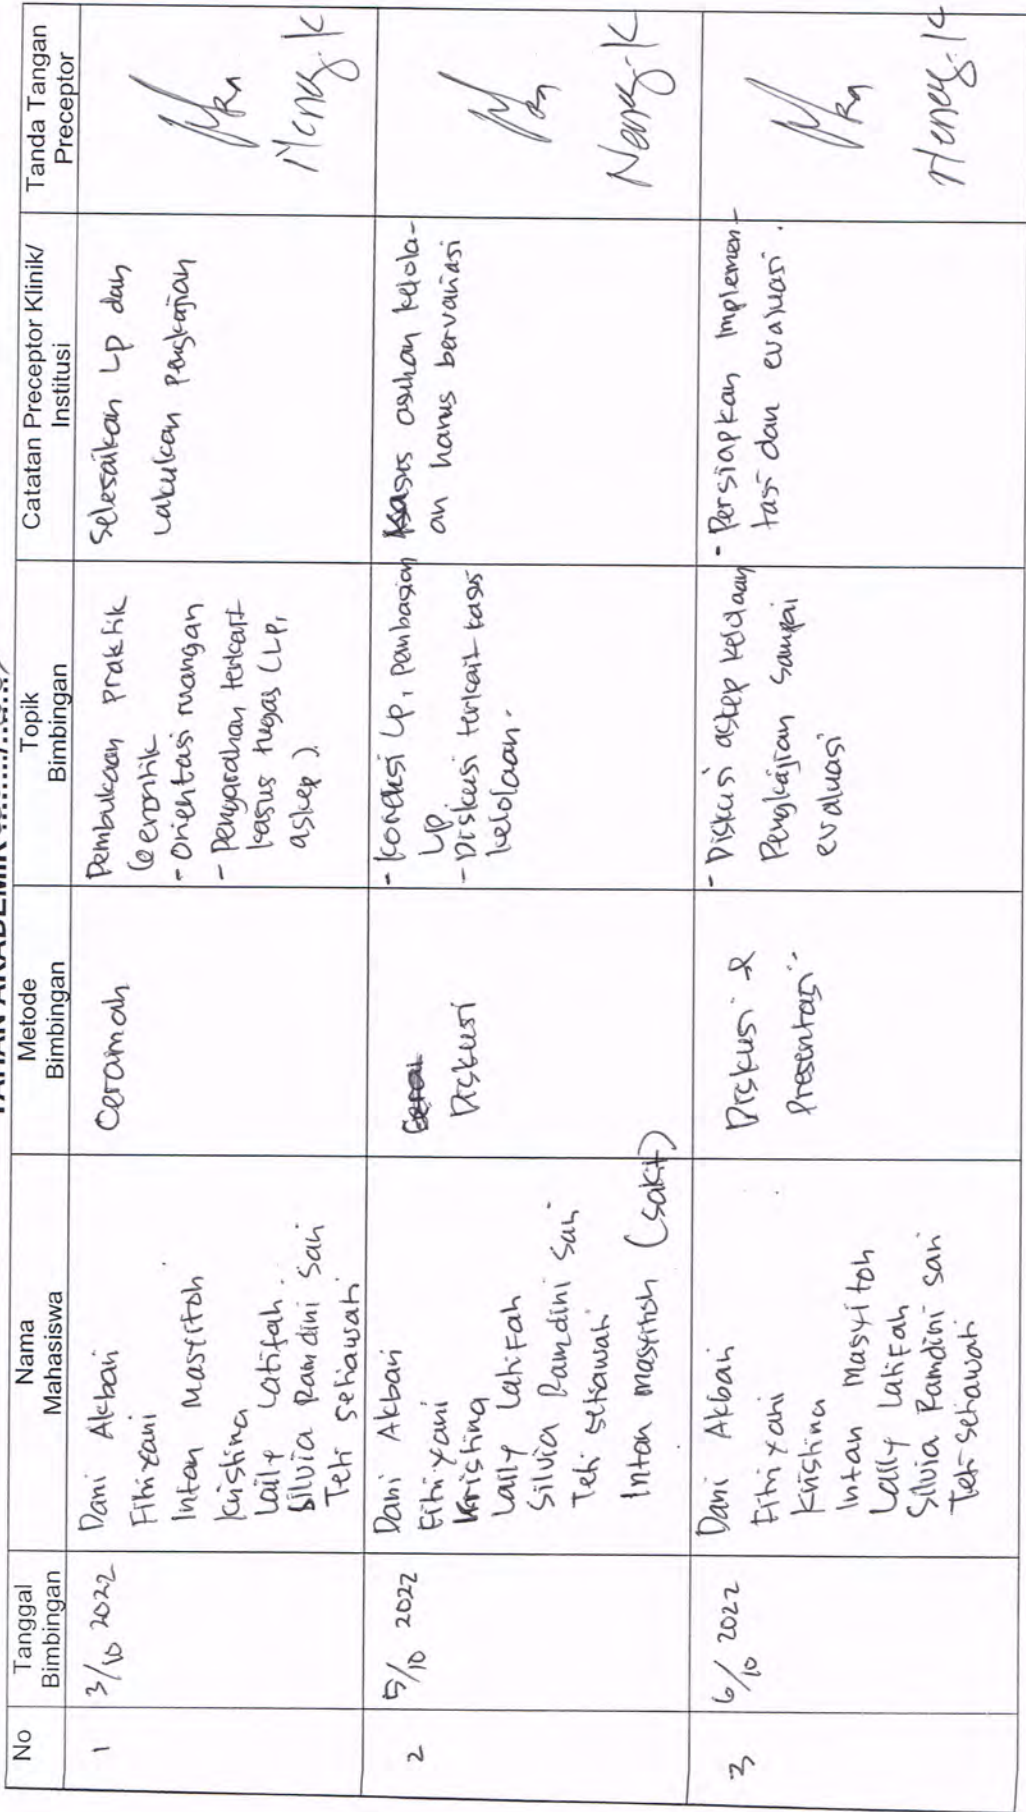 No
Tanggal
Bimbingan
Nama
Mahasiswa
Metode
Bimbingan
Topik
Bimbingan
Catatan Preceptor Klinik/
Institusi
Tanda Tangan
Preceptor
1
3/10 2022
Dani Akbari
Fitriyani
Intan Masyitoh
Kristina
Laily Latifah.
Silvia Ramdini Sari
Teti Setiawati
Ceramah
Pembukaan praktik
Gerontik
- Orientasi ruangan
- Pengarahan terkait
kasus tugas (LP,
askep)
Selesaikan LP dan
Lakukan pengkajian
2
5/10 2022
Dani Akbari
Fitriyani
Kristina
Laily Latifah
Silvia Ramdini Sari
Teti setiawati
Intan Masyitoh (Sakit)
Diskusi
- Koreksi LP, pembagian
LP
- Diskusi terkait kasus
kelolaan.
Kasus asuhan kelola-
an harus bervariasi
3
6/10 2022
Dani Akbari
Fitriyani
Kristina
Intan Masyitoh
Laily Latifah
Silvia Ramdini Sari
Teti setiawati
Diskusi &
Presentasi
- Diskusi askep kelolaan
Pengkajian sampai
evaluasi
- Persiapkan implemen-
tasi dan evaluasi.